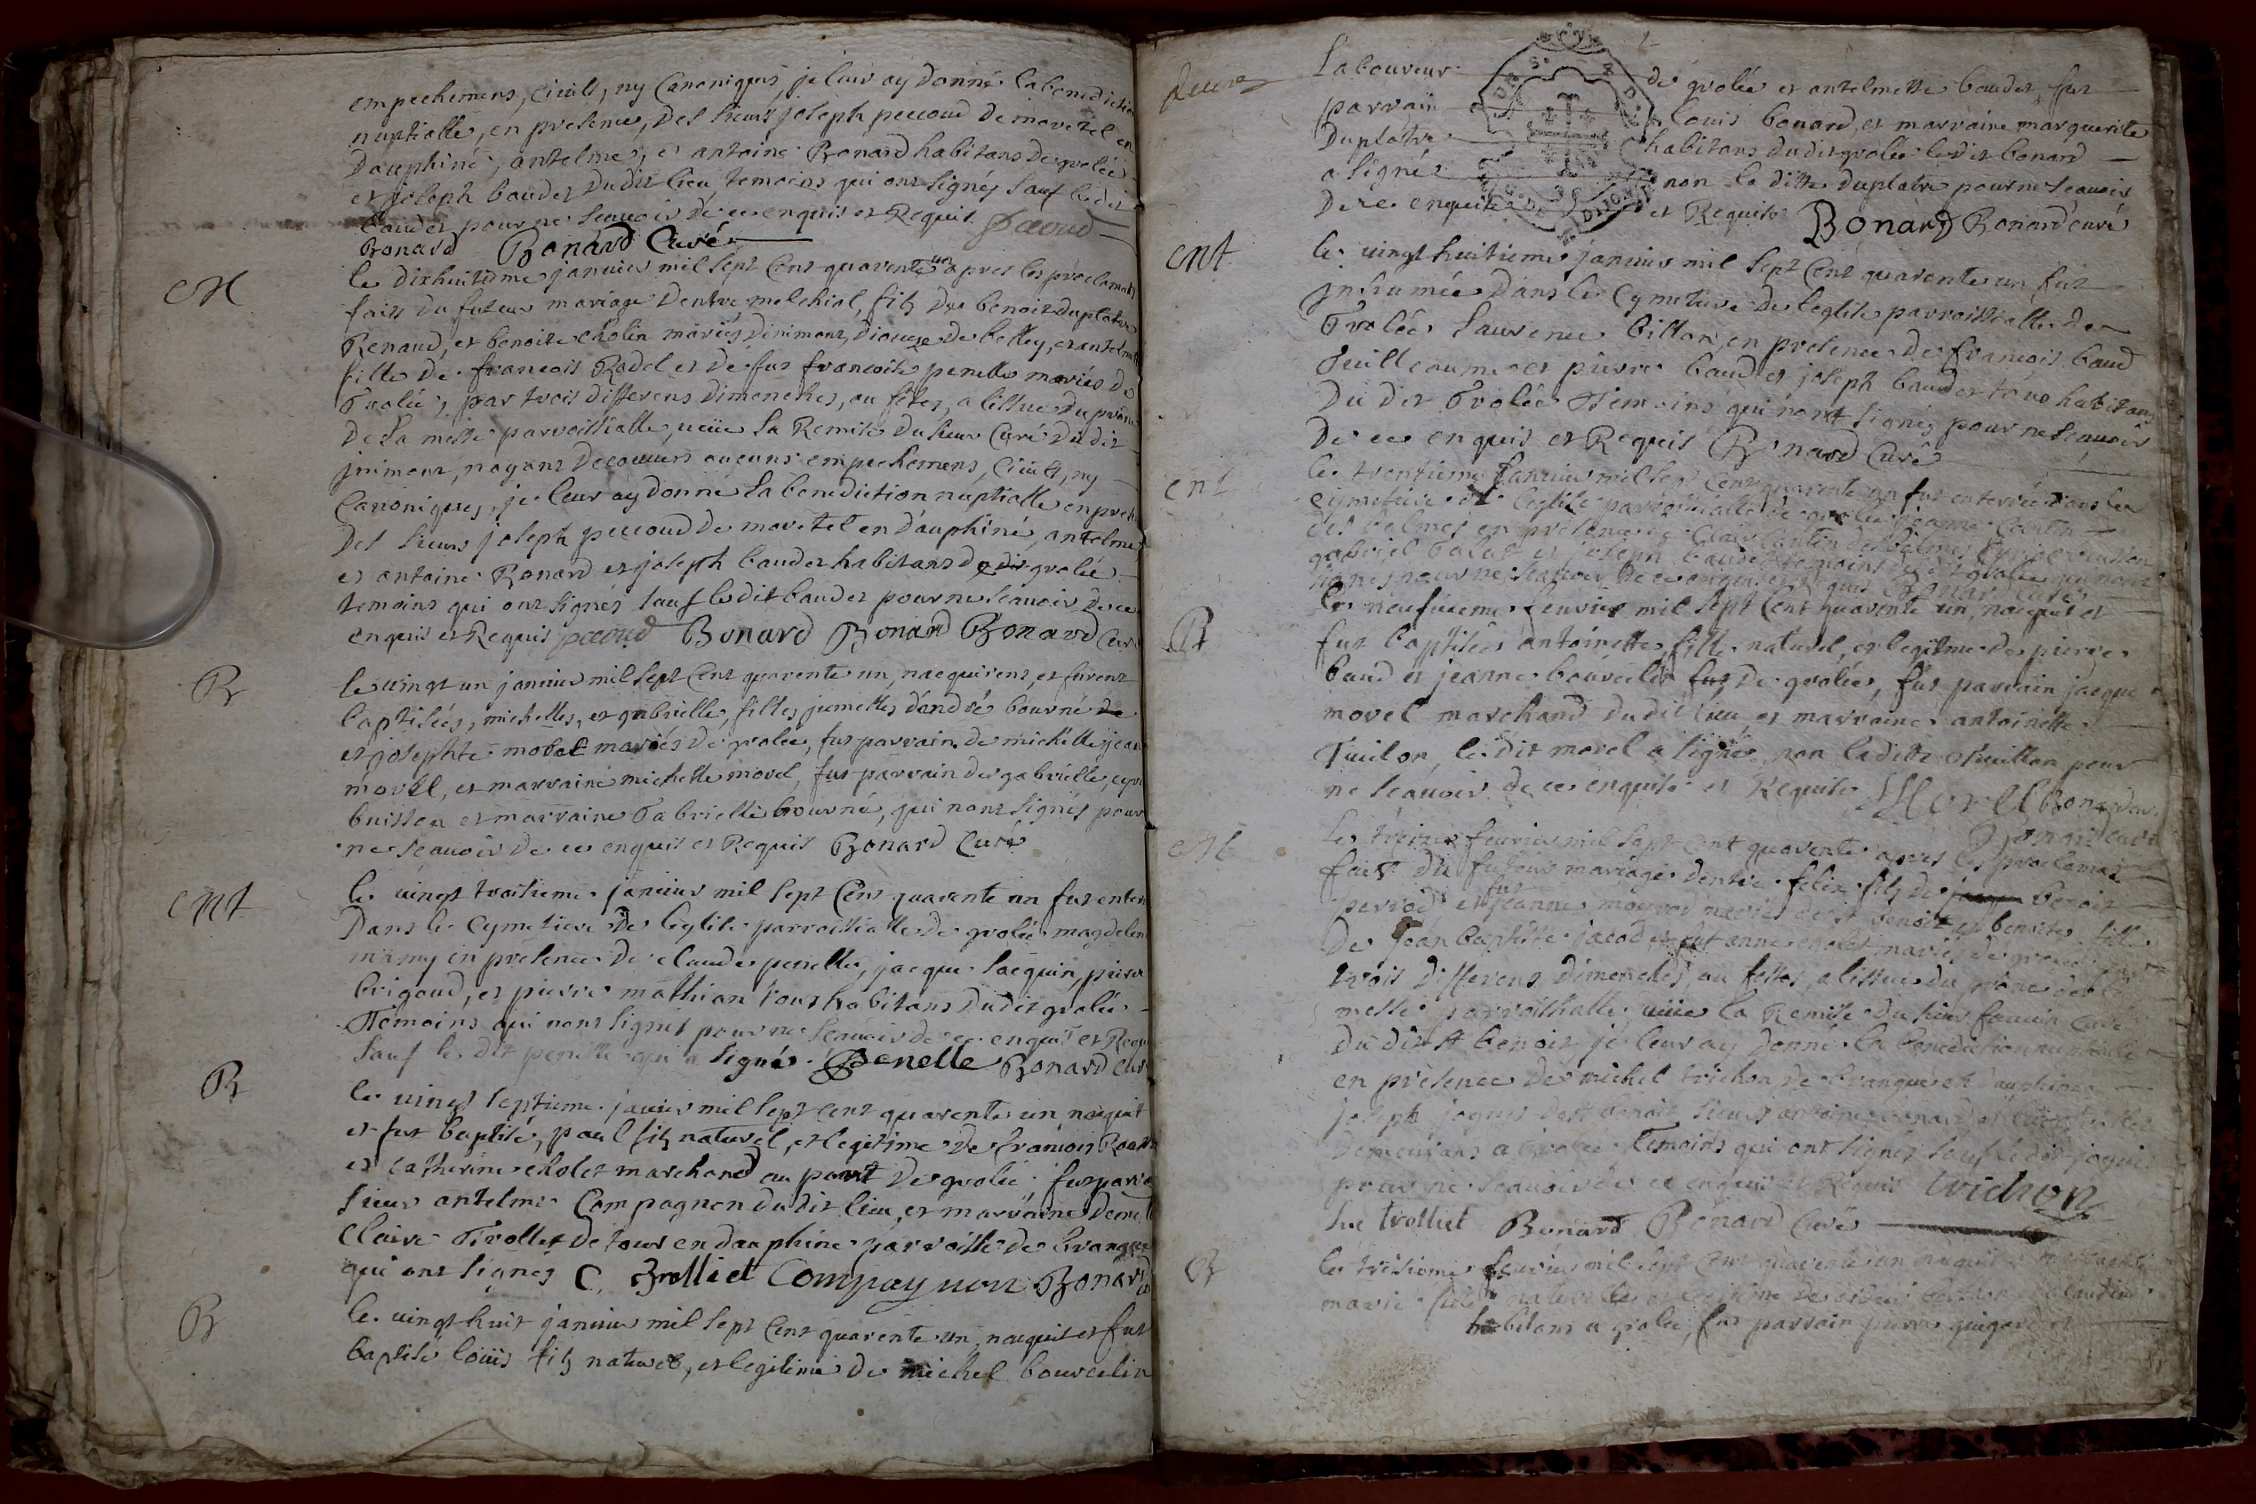 empechemens, civils, ny Canoniques, je leur ay donné la benediction
nuptialle, en presence, des sieurs joseph peccoud de moretel en
Dauphiné, antelme, et antoine Bonard habitans de grolée
et joseph baudet dudit lieu temoins qui ont signés sauf ledit
baudet pour ne scavoir de ce enquis et Requis peccoud
Bonard Bonard Curé
M
le dixhuitieme janvier mil sept Cent quarente un apres les proclamations
faits du futeur mariage d'entre melchiol, fils de benoit duplatre
Renaud, et benoite cholin mariés dinimont, diocese de belley, et antelmette
fille de francois Rodel et de fut francoise penelle mariés de
Grolée, par trois differens dimenches, ou fêtes, a lissue du prône
de la messe parroissialle, veüe la Remise du sieur Curé du dit
jnimont, nayant decouvers aucuns empechemens, civils, ny
Canoniques, je leur ay donné la benediction nuptialle en presence
des sieurs joseph peccoud de moretel en dauphiné, antelme
et antoine Bonard et joseph baudet habitans du dit grolée
temoins qui ont signés sauf ledit baudet pour ne scavoir de ce
enquis et Requis peccoud Bonard Bonard Bonard Curé
B
le vingt un janvier mil sept Cent quarente un, nacquirent, et furent
baptisées, michelle, et gabrielle, filles jumelles d'andré bourné de
et josephte morel mariés de grolée, fut parrain de michelle jean
morel, et marraine michelle morel, fut parrain de gabrielle,
buisson et marraine Gabrielle bourné, qui nont signés pour
ne scavoir de ce enquis et Requis Bonard Curé
Ent
le vingt troisieme janvier mil sept Cent quarente un fut enterrée
Dans le Cymetiere de leglise parroissialle de grolée magdelene
mamy en presence de claude penelle, jacque Jacquin, pierre
brigoud, et pierre mathian tous habitans dudit grolée
Temoins qui nont signés pour ne scavoir de ce enquis et Requis
sauf le dit penelle qui a signé. Penelle Bonard Curé
B
le vingt septieme janvier mil sept cent quarente un naquit
et fut baptisé, paul fils naturel, et legitime de francois
et catherine cholet marchand au port de grolée fut parrain
sieur antelme Compagnon du dit lieu, et marraine
Claire Trolliet de tours en dauphine parroisse de brangue
qui ont signés C. Trolliet Compagnon Bonard
B
le vingt huit janvier mil sept Cent quarente un, naquit et fut
baptisé loüis fils naturel, et legitime de michel bourcelin
laboureur de grolée et antelmette baudet, fut
parrain louis bonard, et marraine marguerite
Duplatre habitans dudit grolée ledit bonard
a signé non la ditte duplatre pour ne scavoir
de ce enquise et Requise Bonard Bonard curé
Ent
le vingt huitieme janvier mil sept Cent quarente un fut
inhumée dans le Cymetiere de leglise parroissialle de
Grolée laurence billon, en presence de francois baud
Guilleaume et pierre baud et joseph baudet tous habitans
du dit Grolée Temoins qui nont signés pour ne scavoir
de ce enquis et Requis Bonard Curé
Ent
le trentieme janvier mil sept Cent quarente un fut enterrée dans le
cymetiere de leglise parroissialle de grolée jeanne
des en presence de
gabriel et joseph baudet temoins dudit grolée qui nont
signés pour ne scavoir de ce enquis et Requis Bonard Curé
B
le neufvieme fevrier mil sept Cent quarente un, naquit et
fut baptisée antoinette, fille naturel, et legitime de pierre
baud et jeanne bourcelin fut de grolée, fut parrain jacque
morel marchand dudit lieu et marraine antoinette
Guilon, le dit morel a signé, non laditte Guillon pour
ne scavoir de ce enquise et Requise Morel Bonard curé
Bonard curé
M
le treizie fevrier mil sept cent quarente apres les proclamat
fait du futeur mariage dentre felix fils de Benoit
period et fut jeanne mariés de st benoit et benoite fille
de jean baptiste jacod et fut anne cholet mariés de grolée
trois differens dimenches, ou fêtes, a lissue du prône de
messe parroissialle, veüe la Remise du sieur Curé
du dit st benoit je leur ay donné la benediction nuptialle
en presence de michel trichon de brangue en dauphiné
joseph joguet de st benoit, sieurs antoine bonard et luc trolliet
demeurans a grolée Temoins qui ont signés sauf le dit joguet
pour ne scavoir de ce enquis et Requis trichon
luc trolliet Bonard Bonard Curé
B
le treisieme fevrier mil sept Cent quarente un naquit et
marie fille naturelle et legitime de
habitans a grolée, fut parrain pierre guigard et